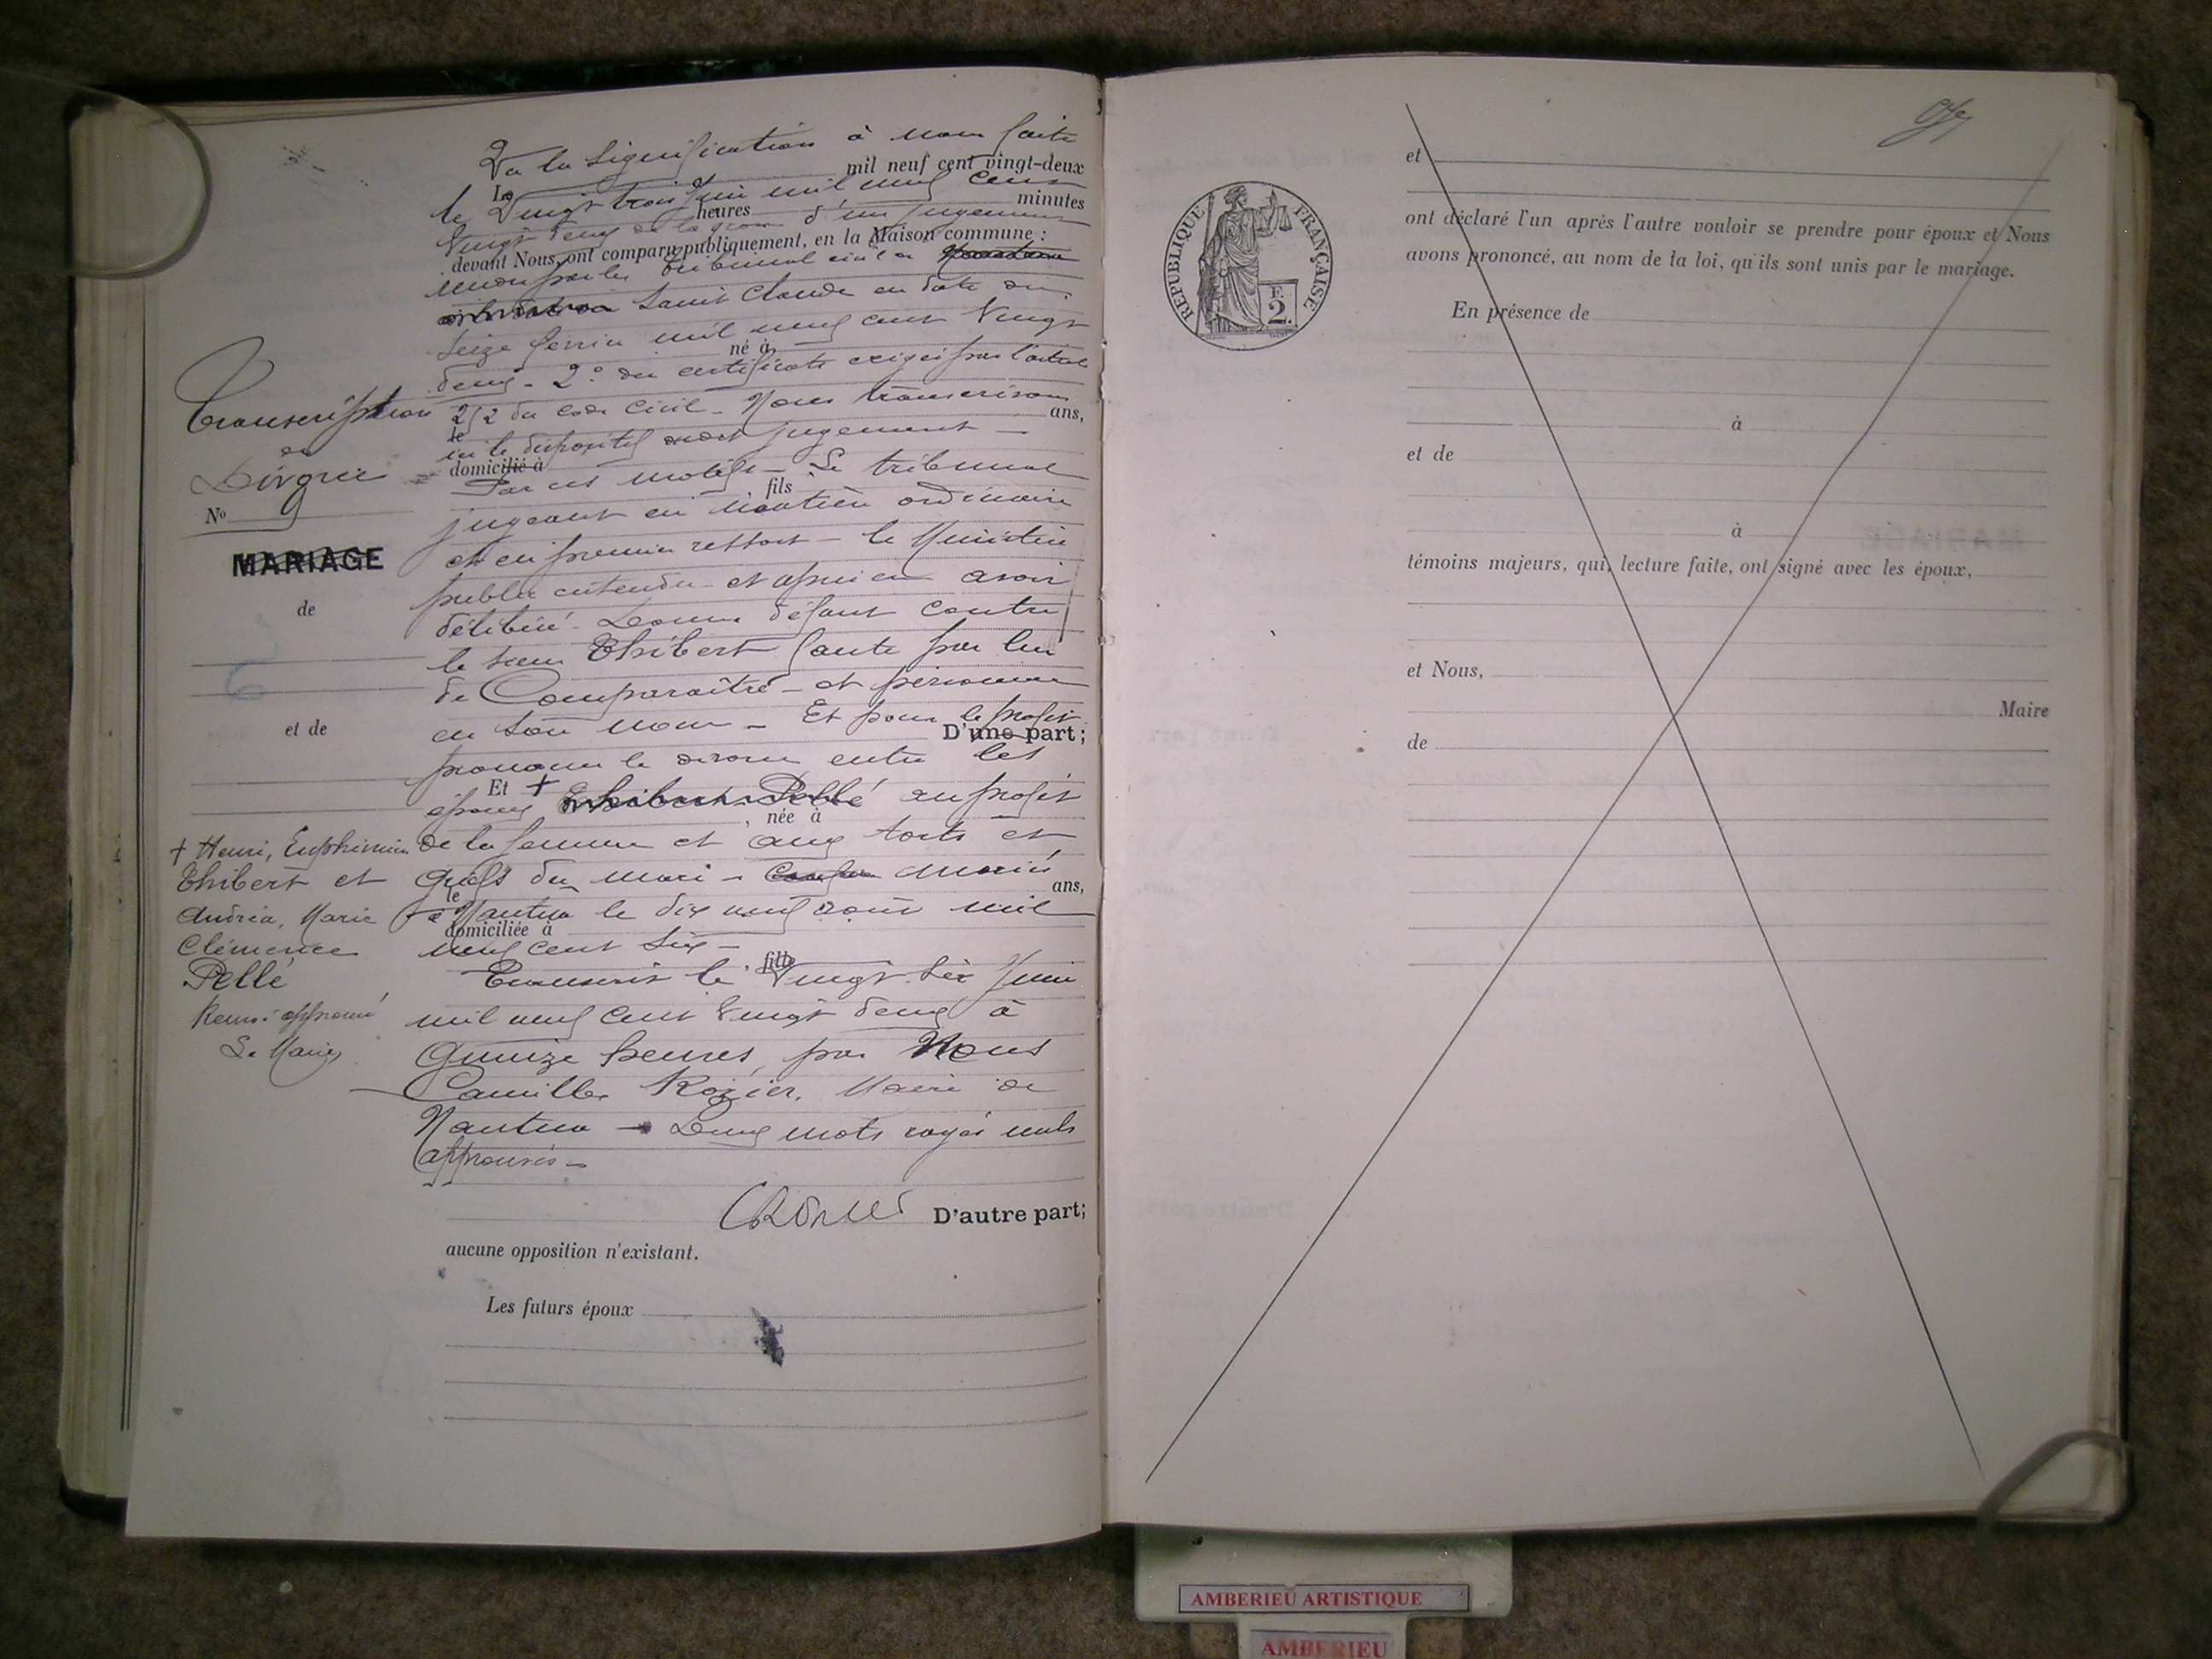 Vu la signification à nous faite
Le mil neuf cent vingt-deux
le Vingt trois Juin mil neuf cent
heures minutes
Vingt deux de la d'un jugement
devant Nous, ont comparu publiquement, en la Maison commune :
rendu par le tribunal civil de
Saint Claude en date du
Seize février mil neuf cent Vingt
né à
deux - 2° du certificat exigé par l'article
252 du code civil - Nous transcrivons
ans,
le
ici le dispositif dudit jugement -
domicilié à
Par ces motifs - Le tribunal
fils
jugeant en matière ordinaire
et en premier ressort - le Ministère
public entendu et après en avoir
délibéré - Donne défaut contre
le sieur Thibert faute par lui
de Comparaître - et personne
en son nom - Et pour le profit
D'une part;
prononce le divorce entre les
Et
époux + Thibert-Pellé au profit
née à
de la femme et aux torts et
griefs du mari - mariés
ans,
le
à Nantua le dix neuf août mil
domiciliée à
neuf cent six -
fille
Transcrit le Vingt six Juin
mil neuf cent Vingt deux à
Quinze heures, par Nous
Camille Rozier, Maire de
Nantua - Deux mots rayés nuls
approuvés -
CRozier
D'autre part;
aucune opposition n'existant.
Les futurs époux
Transcription
de
Divorce
No 9
MARIAGE
de
et de
+ Henri, Euphémin
Thibert et
Andréa, Marie
Clémence
Pellé
Renvoi approuvé
Le Maire
REPUBLIQUE FRANÇAISE
F.
2.
et
ont déclaré l'un après l'autre vouloir se prendre pour époux et Nous
avons prononcé, au nom de la loi, qu'ils sont unis par le mariage.
En présence de
à
et de
à
témoins majeurs, qui, lecture faite, ont signé avec les époux,
et Nous,
Maire
de
AMBERIEU ARTISTIQUE
AMBERIEU